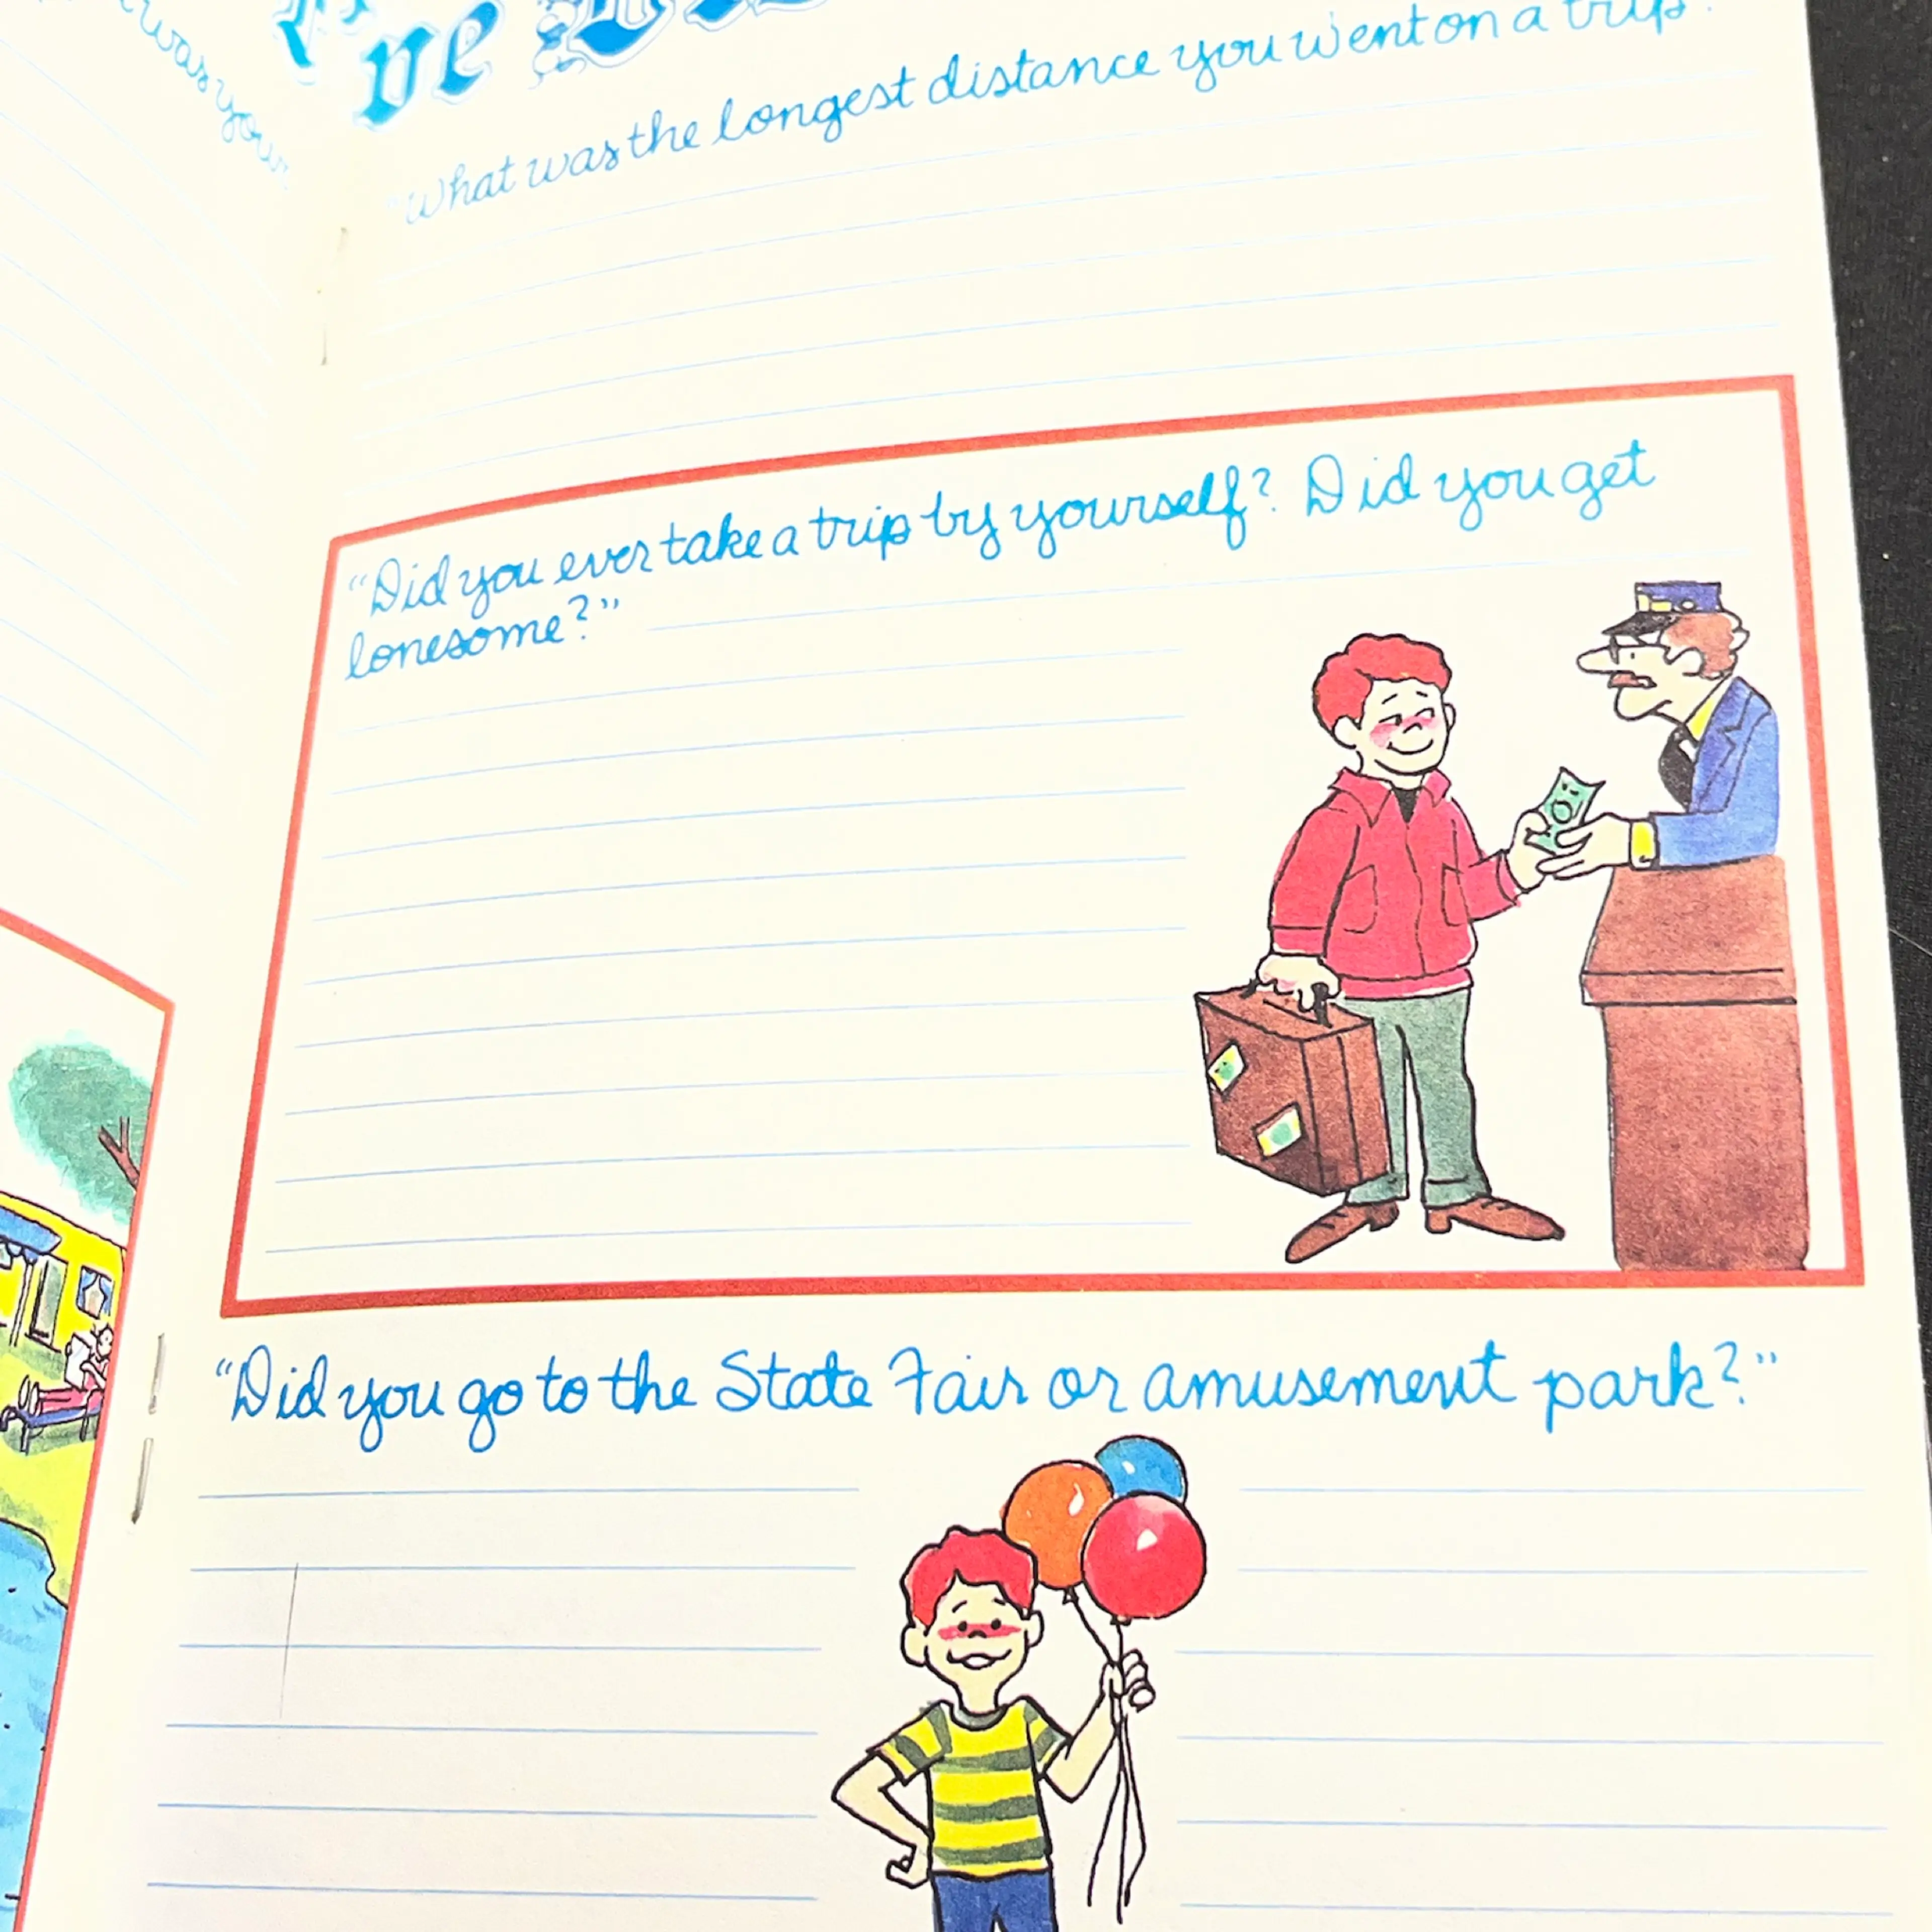 was your
've
"What was the longest distance you went on a trip
"Did you ever take a trip by yourself? Did you get
lonesome?"
"Did you go to the State Fair or amusement park?"